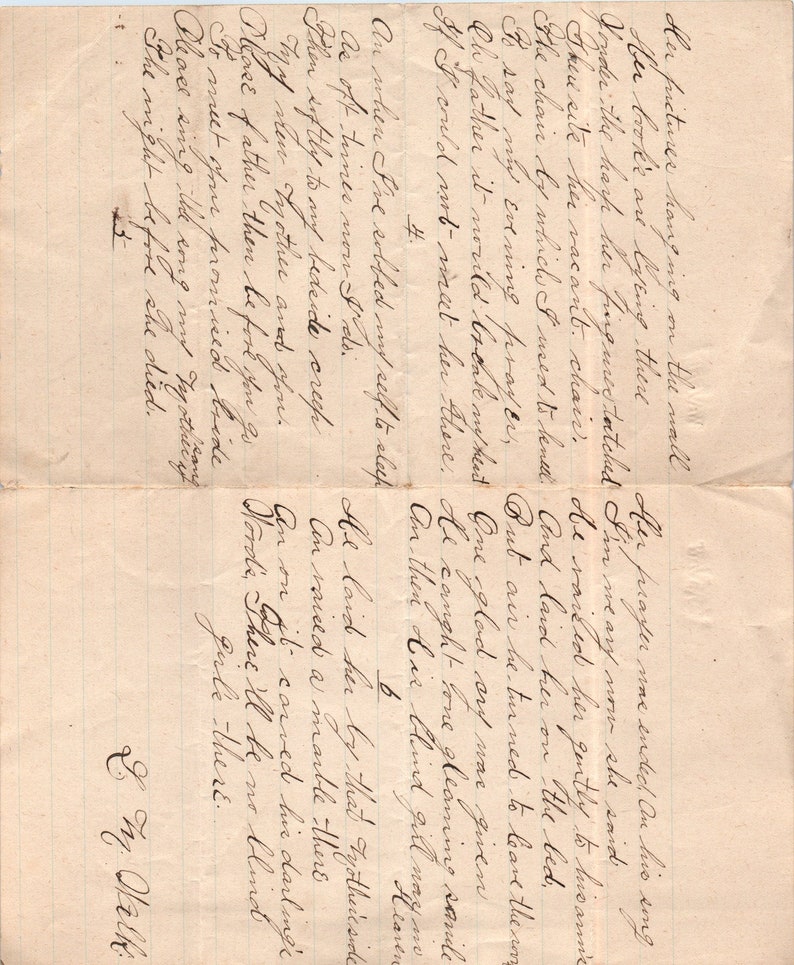 Her pictures hanging on the wall
Her book's are lying there
Yonder the harp her fingures tutched
There sits her vacant chair.
The chair by which I used to kneel
To say my evening prayer,
Oh father it would break my heart
If I could not meet her there.
4.
An when I've sobbed my self to sleep
As oft times now I do.
Then softly to my bedside creep
My new Mother and you.
Please father then before you go
To meet your promised bride
Please sing the song my Mother
sang
The night before she died.
5
Her prayer was ended, An his song
I'm weary now she said
He raised her gently to his arm's
And laid her on the bed.
But air he turned to leave the room
One glad cry was given
He caught one gleaming smile
An then His blind girl was in
Heaven
6
He laid her by that Mother's side
An raised a marble there
An on it carved his darling's
Words, There'll be no blind
girls there.
L. M. Walk.